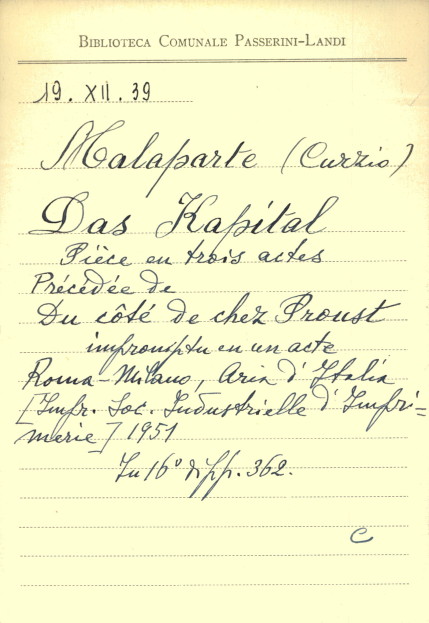 BIBLIOTECA COMUNALE PASSERINI-LANDI
19. XII. 39
Malaparte (Curzio)
Das Kapital
Pièce en trois actes
Précédée de
Du côté de chez Proust
impromptu en un acte
Roma-Milano, Aria d'Italia
[Impr. Soc. Industrielle d'Impri=
merie] 1951
In 16° di pp. 362.
C